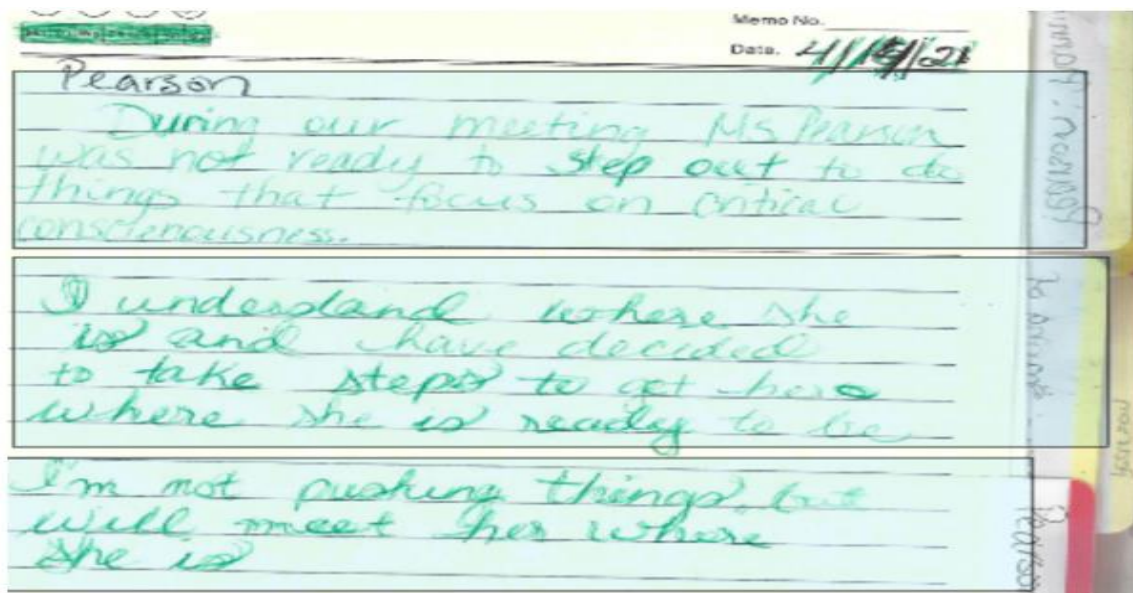 Memo No.
Date. 4/15/21
Pearson
During our meeting Ms Pearson
was not ready to step out to do
things that focus on critical
conscienousness.
I understand where she
is and have decided
to take steps to get here
where she is ready to be
I'm not pushing things, but
will meet her where
she is
Pearson